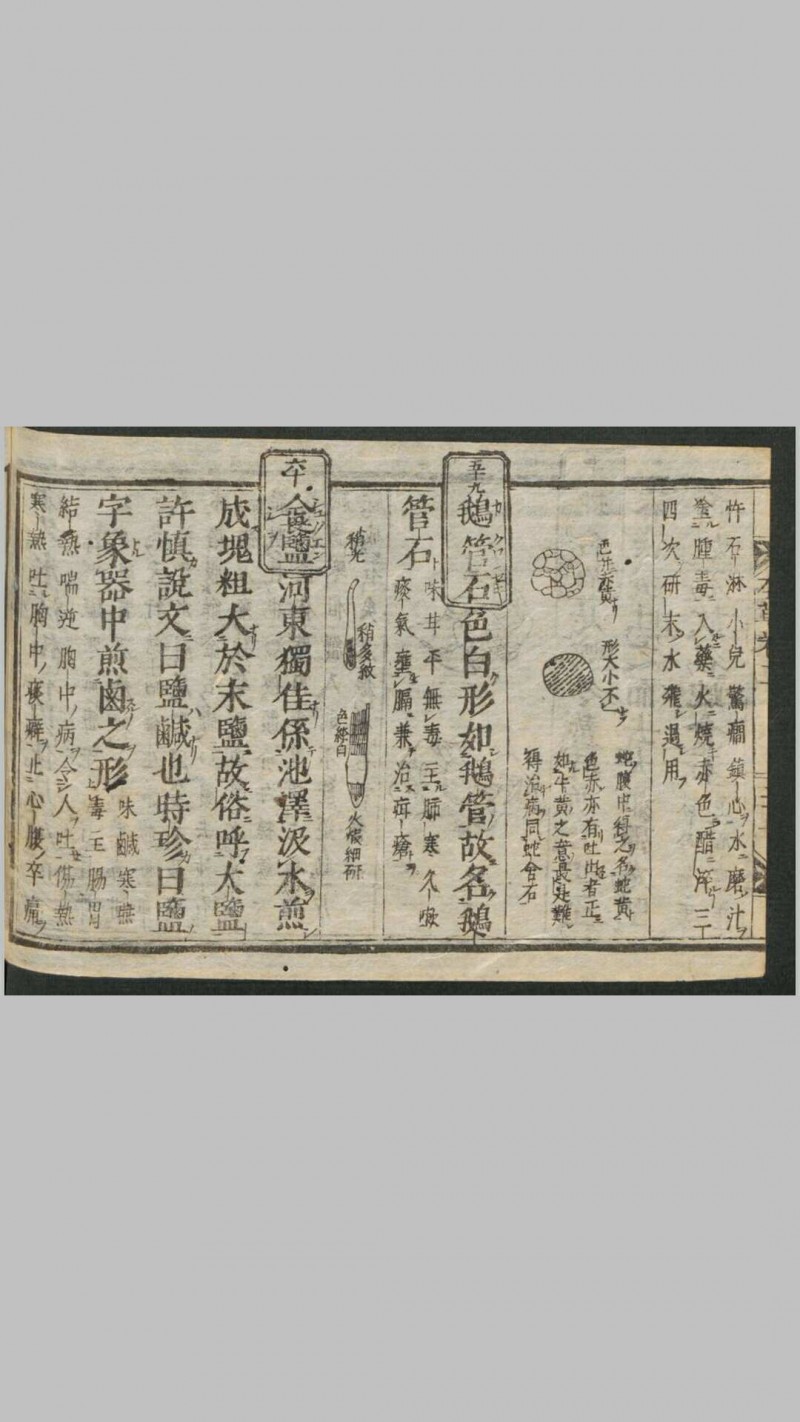 忤石淋小兒驚癇鎮心水磨汁
塗腫毒入藥火燒赤色醋淬三
四次研末水飛過用
色赤蛇黃
形大小不
蛇腹中得之名蛇黃
色赤亦有吐出者正
如牛黃之意畏此難
得治病同蛇含石
五十九
鵝管石色白形如鵝管故名鵝
管石
味甘平無毒主肺寒久嗽
痰氣壅膈兼治瘡
稍光
稍多皴
色輕白
火煅細研
六十
食鹽河東獨佳係池澤汲水煎
成塊粗大於末鹽故俗呼大鹽
許慎說文曰鹽鹹也時珍曰鹽
字象器中煎鹵之形
味鹹寒無
毒主腸胃
結熱喘逆胸中病令人吐傷熱
寒熱吐胸中痰癖止心腹卒痛